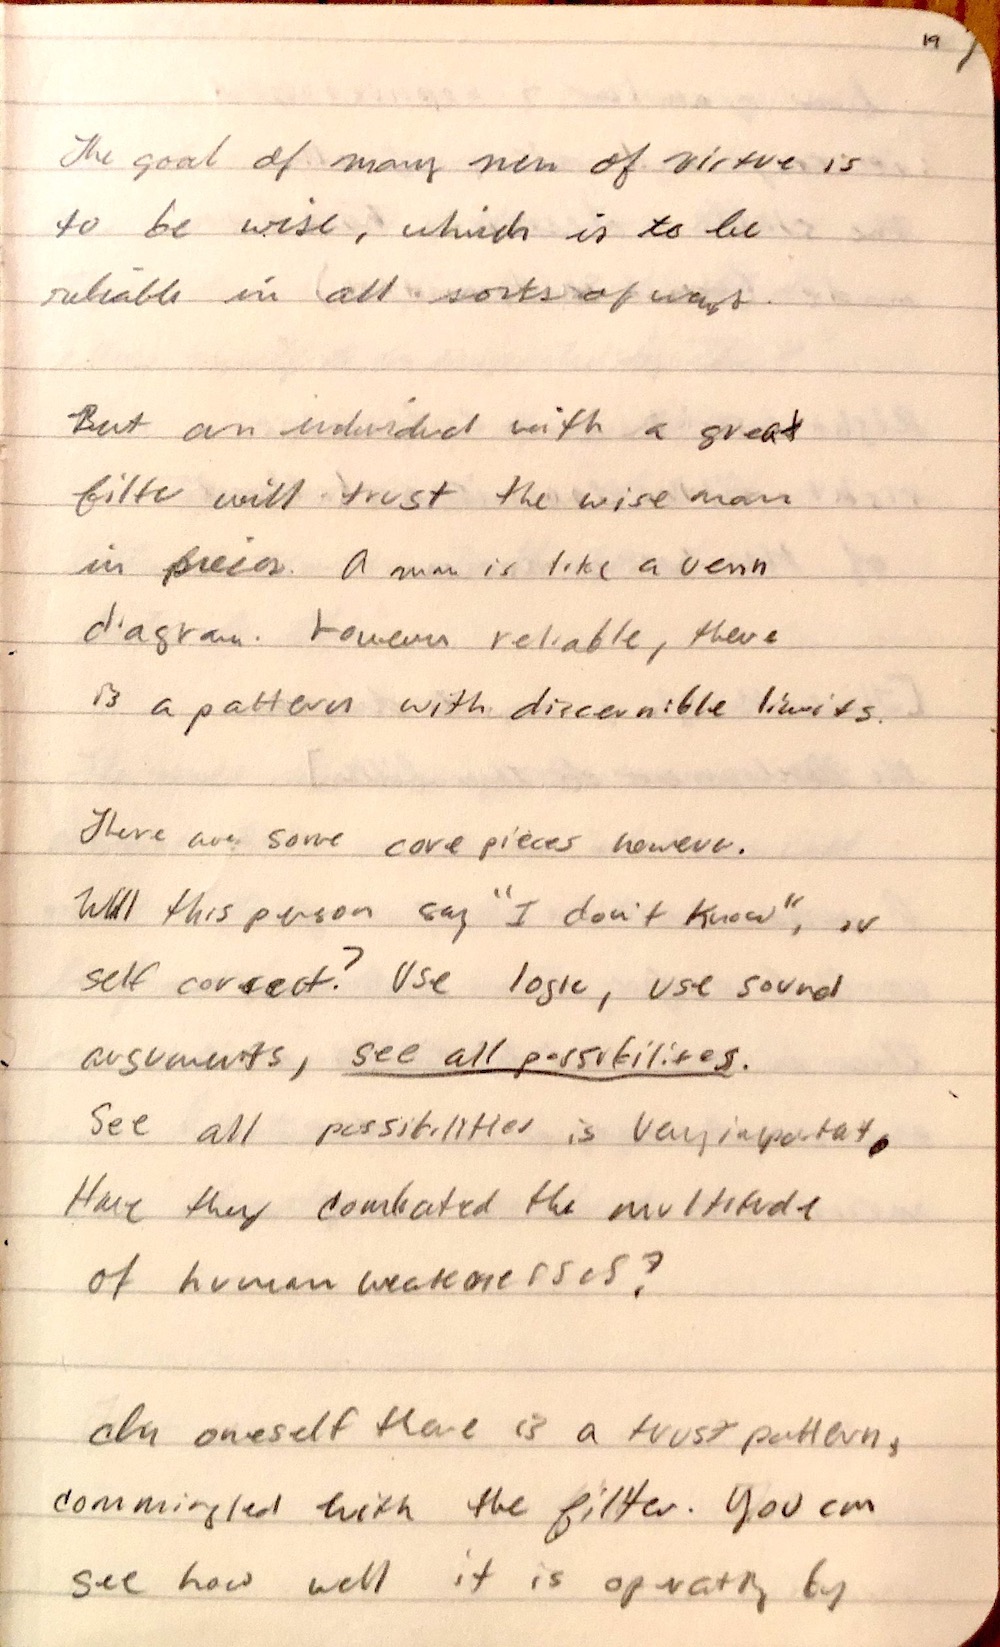 19
The goal of many men of virtue is
to be wise, which is to be
reliable in all sorts of ways.
But an individual with a great
filter will trust the wise man
in pieces. A man is like a venn
diagram. However reliable, there
is a pattern with discernible limits.
There are some core pieces however.
Will this person say "I don't know", or
self correct? Use logic, use sound
arguments, see all possibilities.
See all possibilities is very important.
Have they combated the multitude
of human weaknesses?
In oneself there is a trust pattern,
commingled with the filter. You can
see how well it is operating by